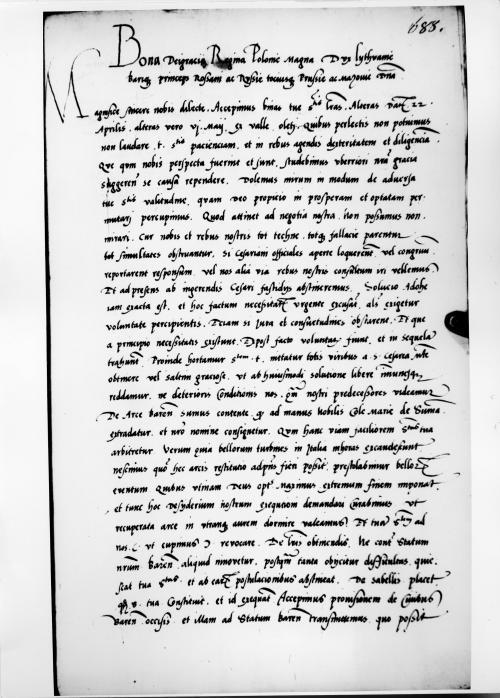 683.
Bona Dei gracia Regina Polonie Magna Dux lythvanie
Barique princeps Rossani ac Russie tociusque Prussie ac Mazovie dna
Magnifice sincere nobis dilecte. Accepimus binas tue lras. Alteras 22.
Aprilis. alteras vero vj. May. ex valle oleti. Quibus perlectis non potuimus
non laudare. t. paciencium. et in rebus agendis dexteritatem et diligencia
Que qum nobis perspecta fuerint et sunt. studebimus uberiori nra gracia
suggeren se causa rependere. Dolemus mirum in modum de adversa
tue valitudine. quam Deo propicio in prosperam et optatam per-
mutari percupimus. Quod attinet ad negotia nostra. Non possumus non
mirari. Cur nobis et rebus nostris tot techne. totque fallacie parentur
tot simultates obstruantur. Si Cesariani officiales aperte loquerent vel congruu
reportarent responsum. vel nos alia via rebus nostris consultum iri vellemus
Et ad presens ab ingerendis Cesari fastidys abstineremus. Solucio Adohe
iam exacta est. et hoc factum urgente excusat. als exigetur
voluntate percipientis. Eciam si Jura et consuetudines obstarent. Et que
a principio necessitatis existunt. Dpost facto voluntat fiunt. et in sequela
trahunt. Proinde hortamur. t. nitatur totis viribus a. s. Cesarea
obtinere vel saltem graciose. ut ab huiusmodi solutione libere
reddamur. ne deterioris Conditionis nos. qm nostri predecessores videamur
De Arce Baren sumus contente q ad manus Nobilis Cole Marie de Suma
extradatur. et nro nomine consignetur. Qum hanc viam faciliorem tua
arbitretur Verum quia bellorum turbines in Italia inhoras excandescunt
nescimus quo hec arcis restitutio adpns fieri possit. prestolabimur
eventum Quibus utinam Deus opt maximus extremum finem imponat.
et tunc hoc desyderium nostrum exequtioni demandari Curabimus Ut
recuperata arce in utranque aurem dormire valeamus. Et tua ad
nos. ut cupimus revocare. De lris obtinendis. Ne cont Statum
nrum Baren. aliquid innovetur. postqm tanta obyicitur difficultas. quie-
scat tua. et ab postulacionibus abstineat. De sabellis placet
tua Constituit. et id exequat Accepimus provisionem de
Baren. occisis et illam ad Statum Baren transmittemus. quo possit